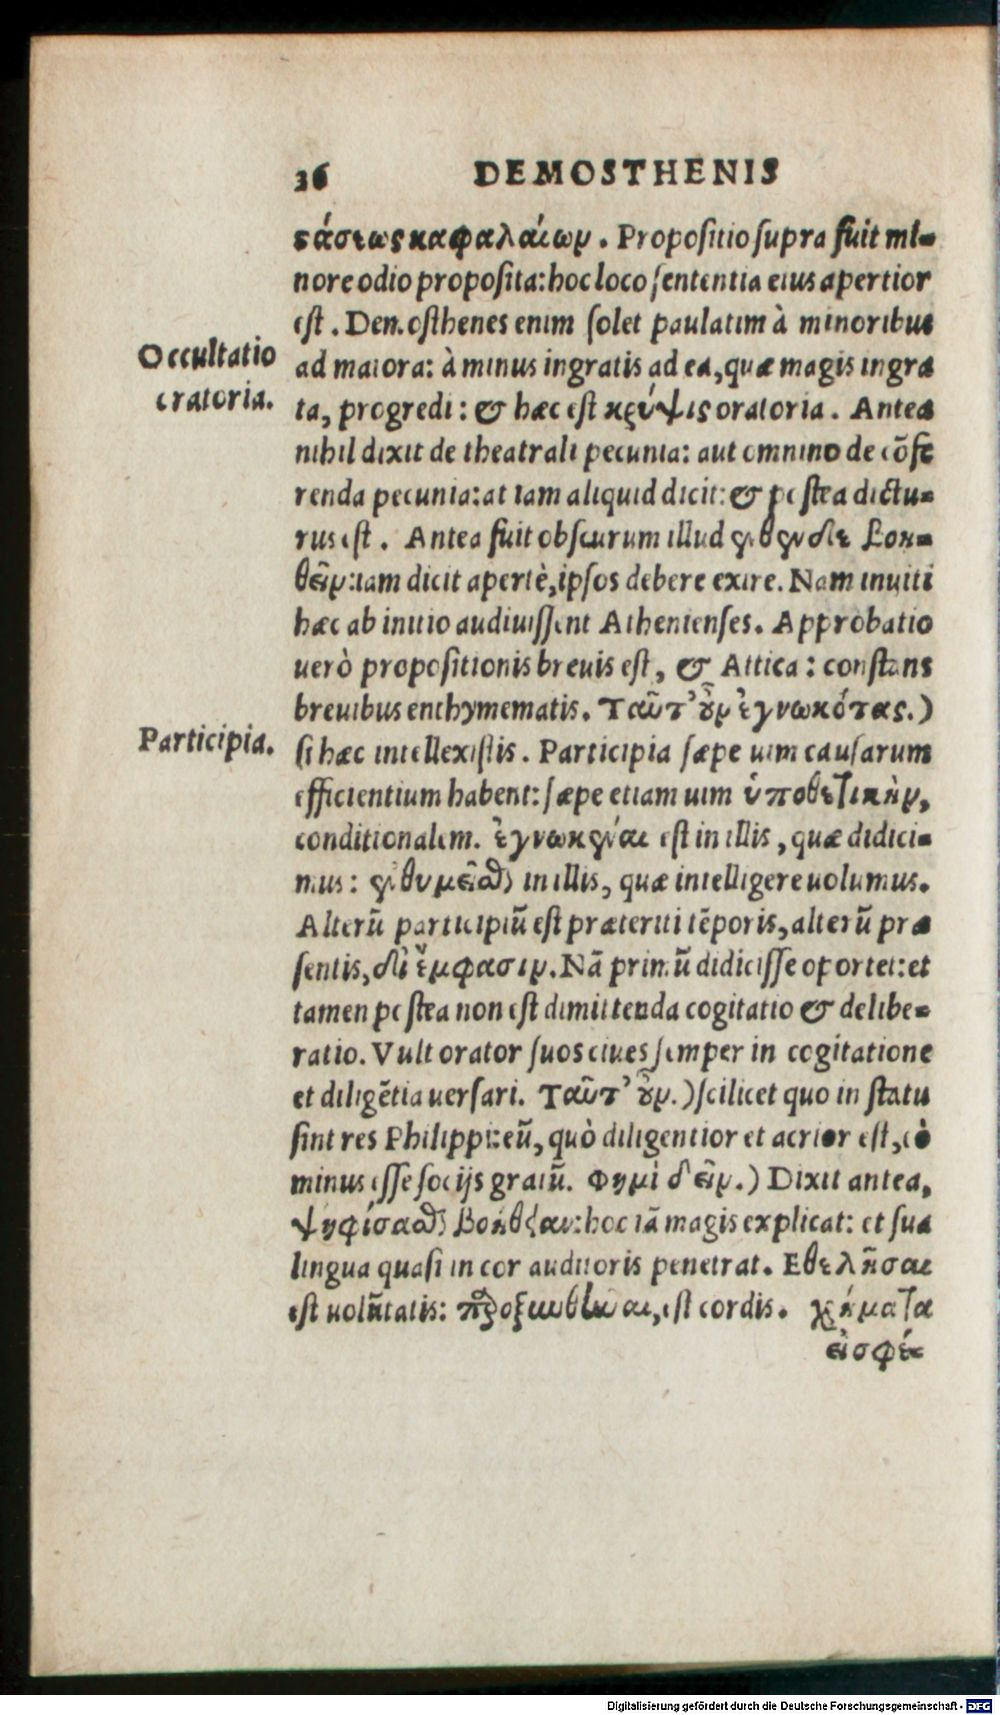 36 DEMOSTHENIS
ςάσεως καφαλαίων. Propositio supra fuit mi-
nore odio proposita: hoc loco sententia eius apertior
est. Demosthenes enim solet paulatim à minoribus
Occultatio
oratoria.
ad maiora: à minus ingratis ad ea, quæ magis ingra
ta, progredi: & hæc est κρύψις oratoria. Antea
nihil dixit de theatrali pecunia: aut omnino de cōfe
renda pecunia: at iam aliquid dicit: & postea dictu-
rus est. Antea fuit obscurum illud ἐνθένδε βοη-
θεῖν: iam dicit apertè, ipsos debere exire. Nam inuiti
hæc ab initio audiuissent Athenienses. Approbatio
uerò propositionis breuis est, & Attica: constans
breuibus enthymematis. Ταῦτ' οὖν ἐγνωκότας.)
Participia.
si hæc intellexistis. Participia sæpe uim causarum
efficientium habent: sæpe etiam uim ὑποθετικὴν,
conditionalem. ἐγνωκέναι est in illis, quæ didici-
mus: ἐνθυμεῖσθαι in illis, quæ intelligere uolumus.
Alterū participiū est præteriti tēporis, alterū præ
sentis, δι' ἔμφασιν. Nā primū didicisse oportet: et
tamen postea non est dimittenda cogitatio & delibe-
ratio. Vult orator suos ciues semper in cogitatione
et diligētia uersari. Ταῦτ' οὖν.) scilicet quo in statu
sint res Philippi: eū, quò diligentior et acrior est, eò
minus esse socijs gratū. Φημὶ δεῖν.) Dixit antea,
ψηφίσασθαι βοήθειαν: hoc iā magis explicat: et sua
lingua quasi in cor auditoris penetrat. Εθελῆσαι
est uolūtatis: παροξυνθῆναι, est cordis. χρήματα
εἰσφέ-